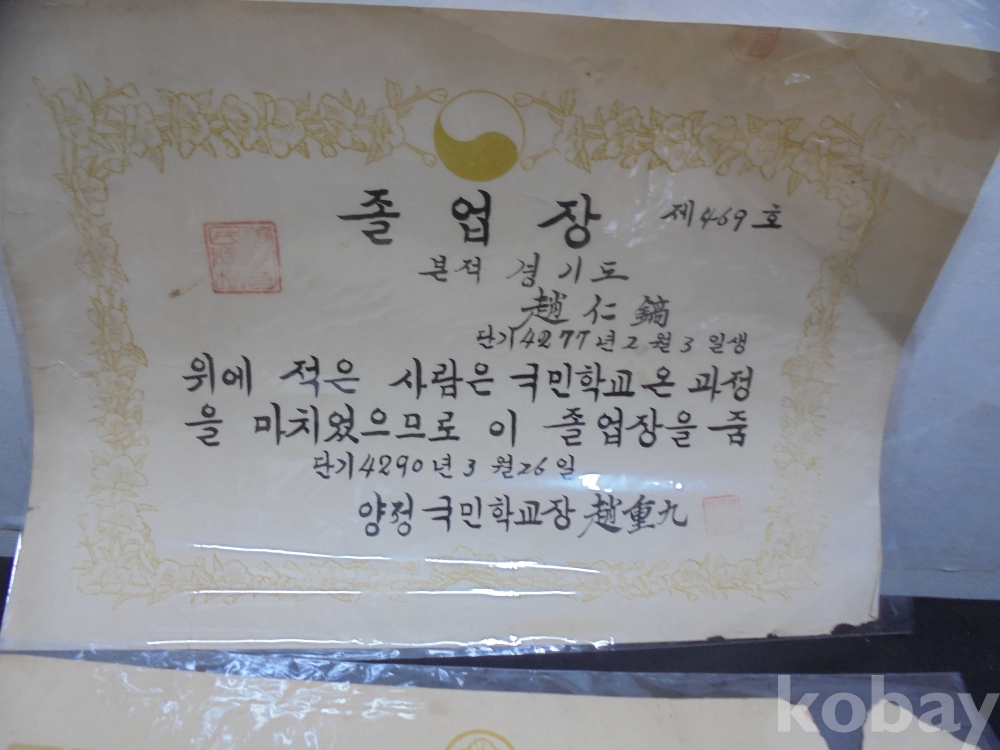 졸업장 제469호
본적 경기도
趙仁鎬
단기4277년2월3일생
위에 적은 사람은 국민학교 온 과정
을 마치었으므로 이 졸업장을 줌
단기4290년3월26일
양정국민학교장 趙重九
kobay